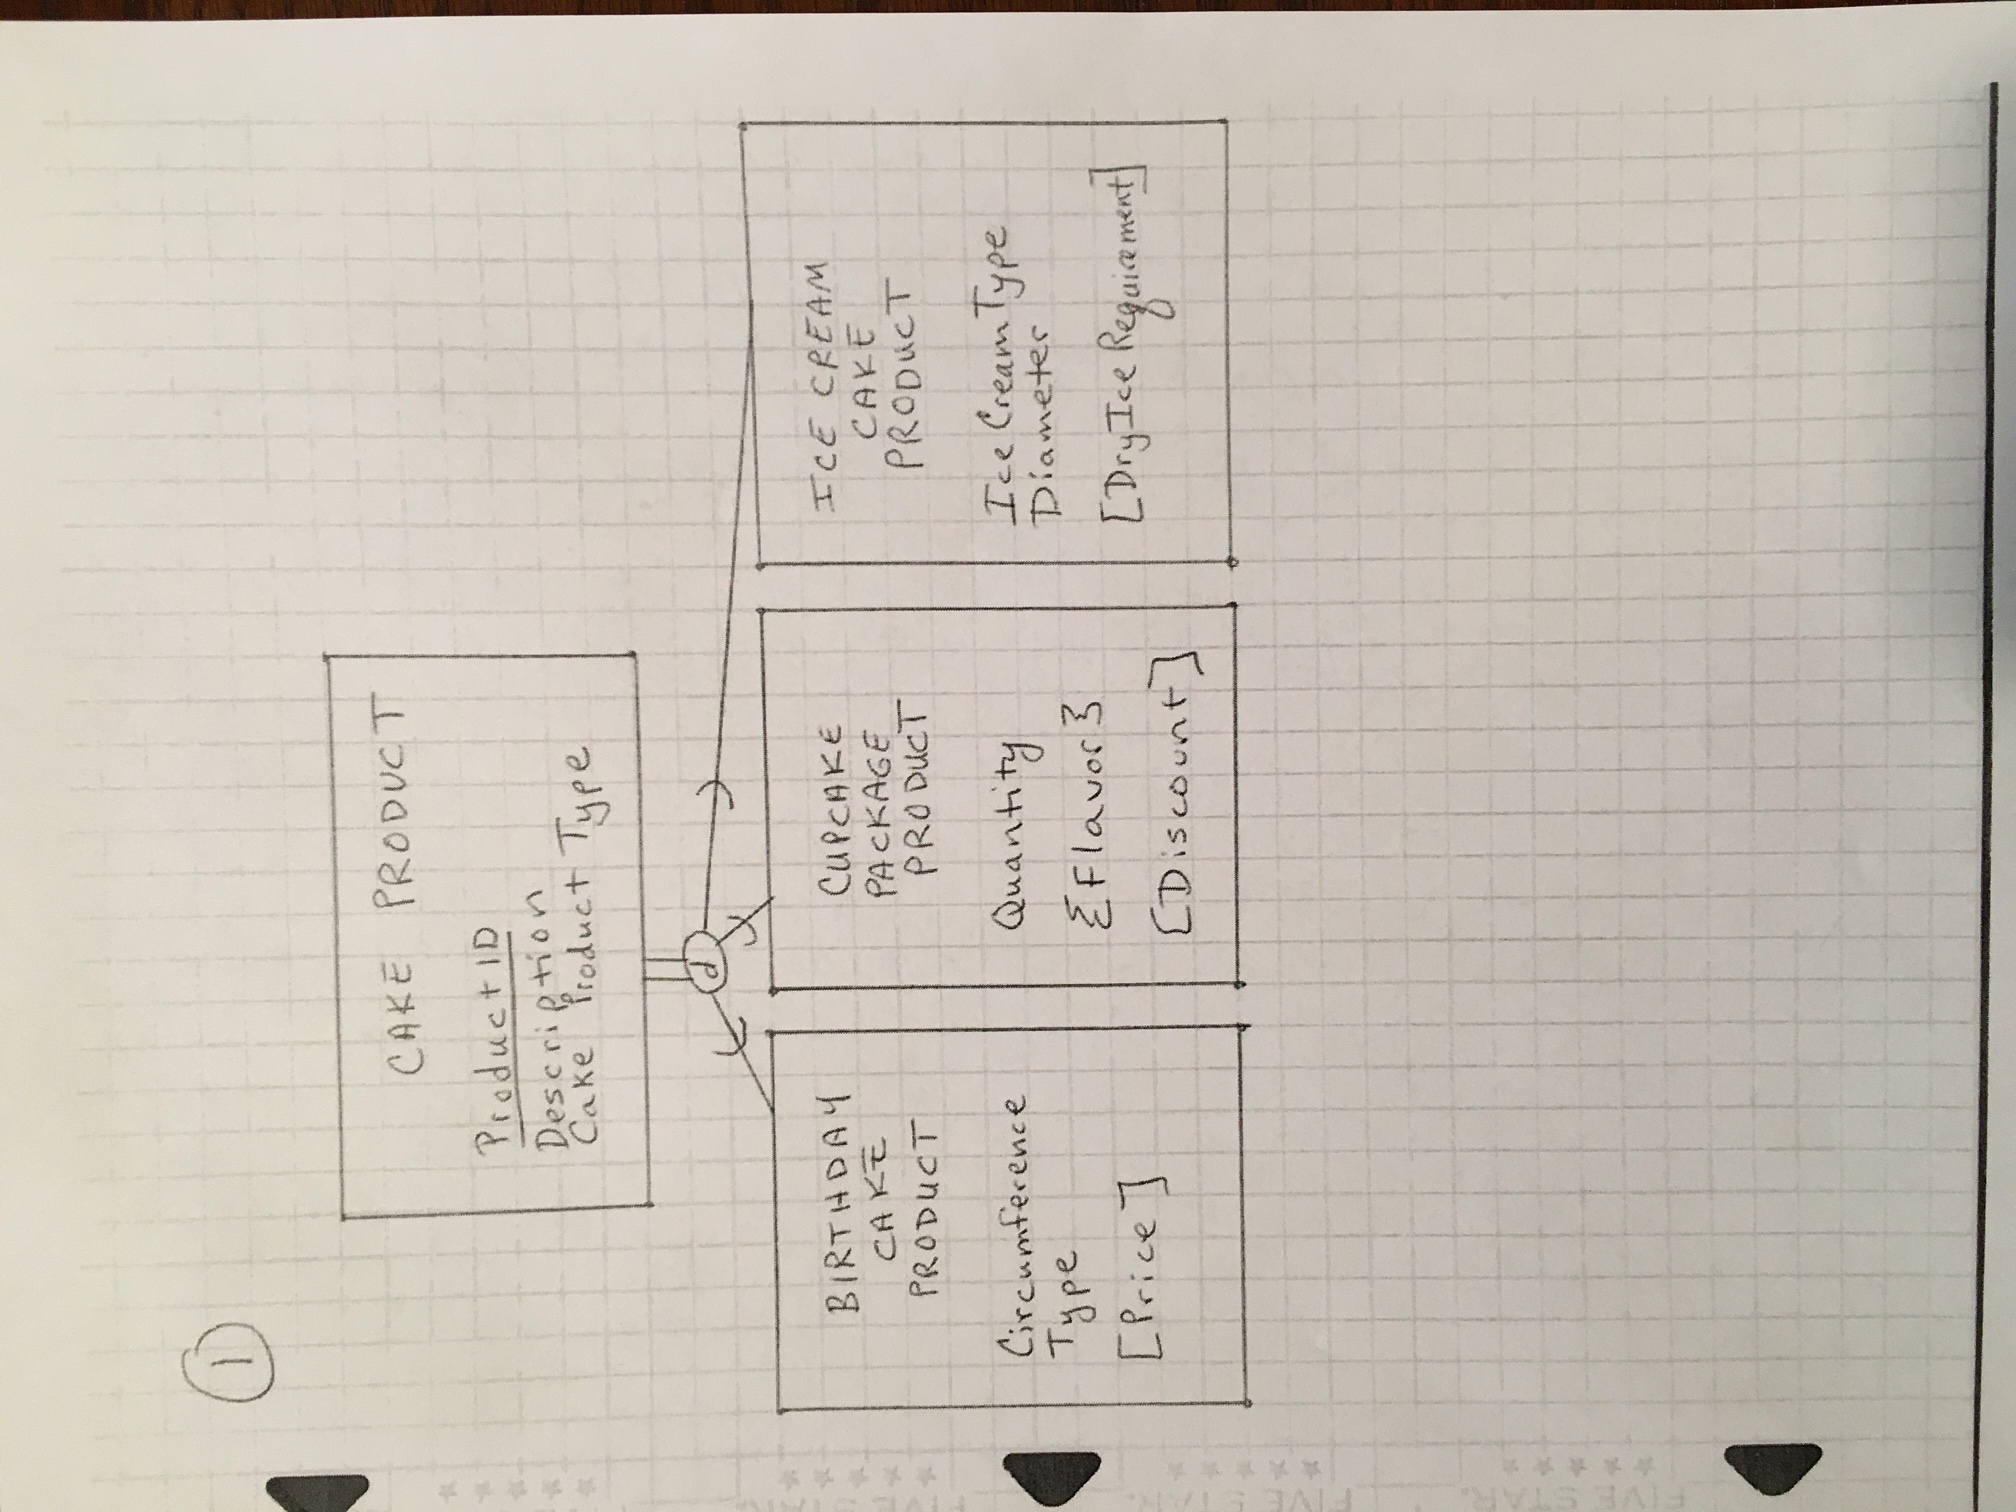 1
CAKE PRODUCT
Product ID
Description
Cake Product Type
d
BIRTHDAY
CAKE
PRODUCT
Circumference
Type
[Price]
CUPCAKE
PACKAGE
PRODUCT
Quantity
{Flavor}
[Discount]
ICE CREAM
CAKE
PRODUCT
Ice Cream Type
Diameter
[Dry Ice Requirement]
FIVE STAR.
FIVE STAR.
FIVE STAR.
FIVE STAR.